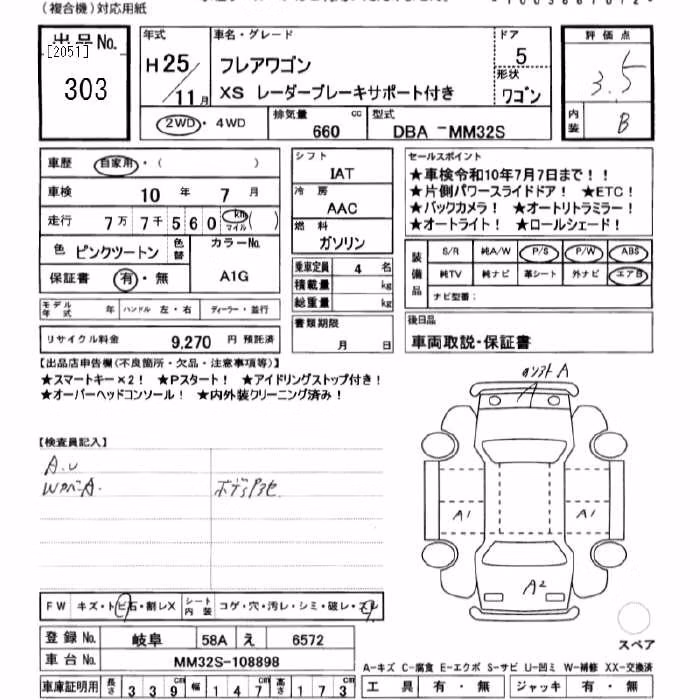 (複合機)対応用紙
出品No. [2051] 303
年式 H25/11月
車名・グレード フレアワゴン XS レーダーブレーキサポート付き
ドア 5
形状 ワゴン
評価点 3.5
内装 B
2WD・4WD
排気量 660 cc
型式 DBA-MM32S
車歴 自家用・( )
車検 10年 7月
走行 7万7千560 km マイル ( )
色 ピンクツートン 色替 カラーNo. A1G
保証書 有・無
モデル年式 年 ハンドル 左・右 ディーラー・並行
リサイクル料金 9,270 円 預託済
シフト IAT
冷房 AAC
燃料 ガソリン
乗車定員 4 名
積載量 kg
総重量 kg
書類期限 月 日
セールスポイント
★車検令和10年7月7日まで!!
★片側パワースライドドア! ★ETC!
★バックカメラ! ★オートリトラミラー!
★オートライト! ★ロールシェード!
装備品 S/R 純A/W P/S P/W ABS
純TV 純ナビ 革シート 外ナビ エアB
ナビ型番:
後日品
車両取説・保証書
【出品店申告欄(不良箇所・欠品・注意事項等)】
★スマートキー×2! ★Pスタート! ★アイドリングストップ付き!
★オーバーヘッドコンソール! ★内外装クリーニング済み!
【検査員記入】
A.U
A
A
A1 A1
A2
スペア
FW キズ・トビ石・割レX シート内装 コゲ・穴・汚レ・シミ・破レ・スレ
登録No. 岐阜 58A え 6572
車台No. MM32S-108898
車庫証明用 長さ 339 幅 147 高さ 173
A-キズ C-腐食 E-エクボ S-サビ U-凹ミ W-補修 XX-交換済
工具 有・無 ジャッキ 有・無